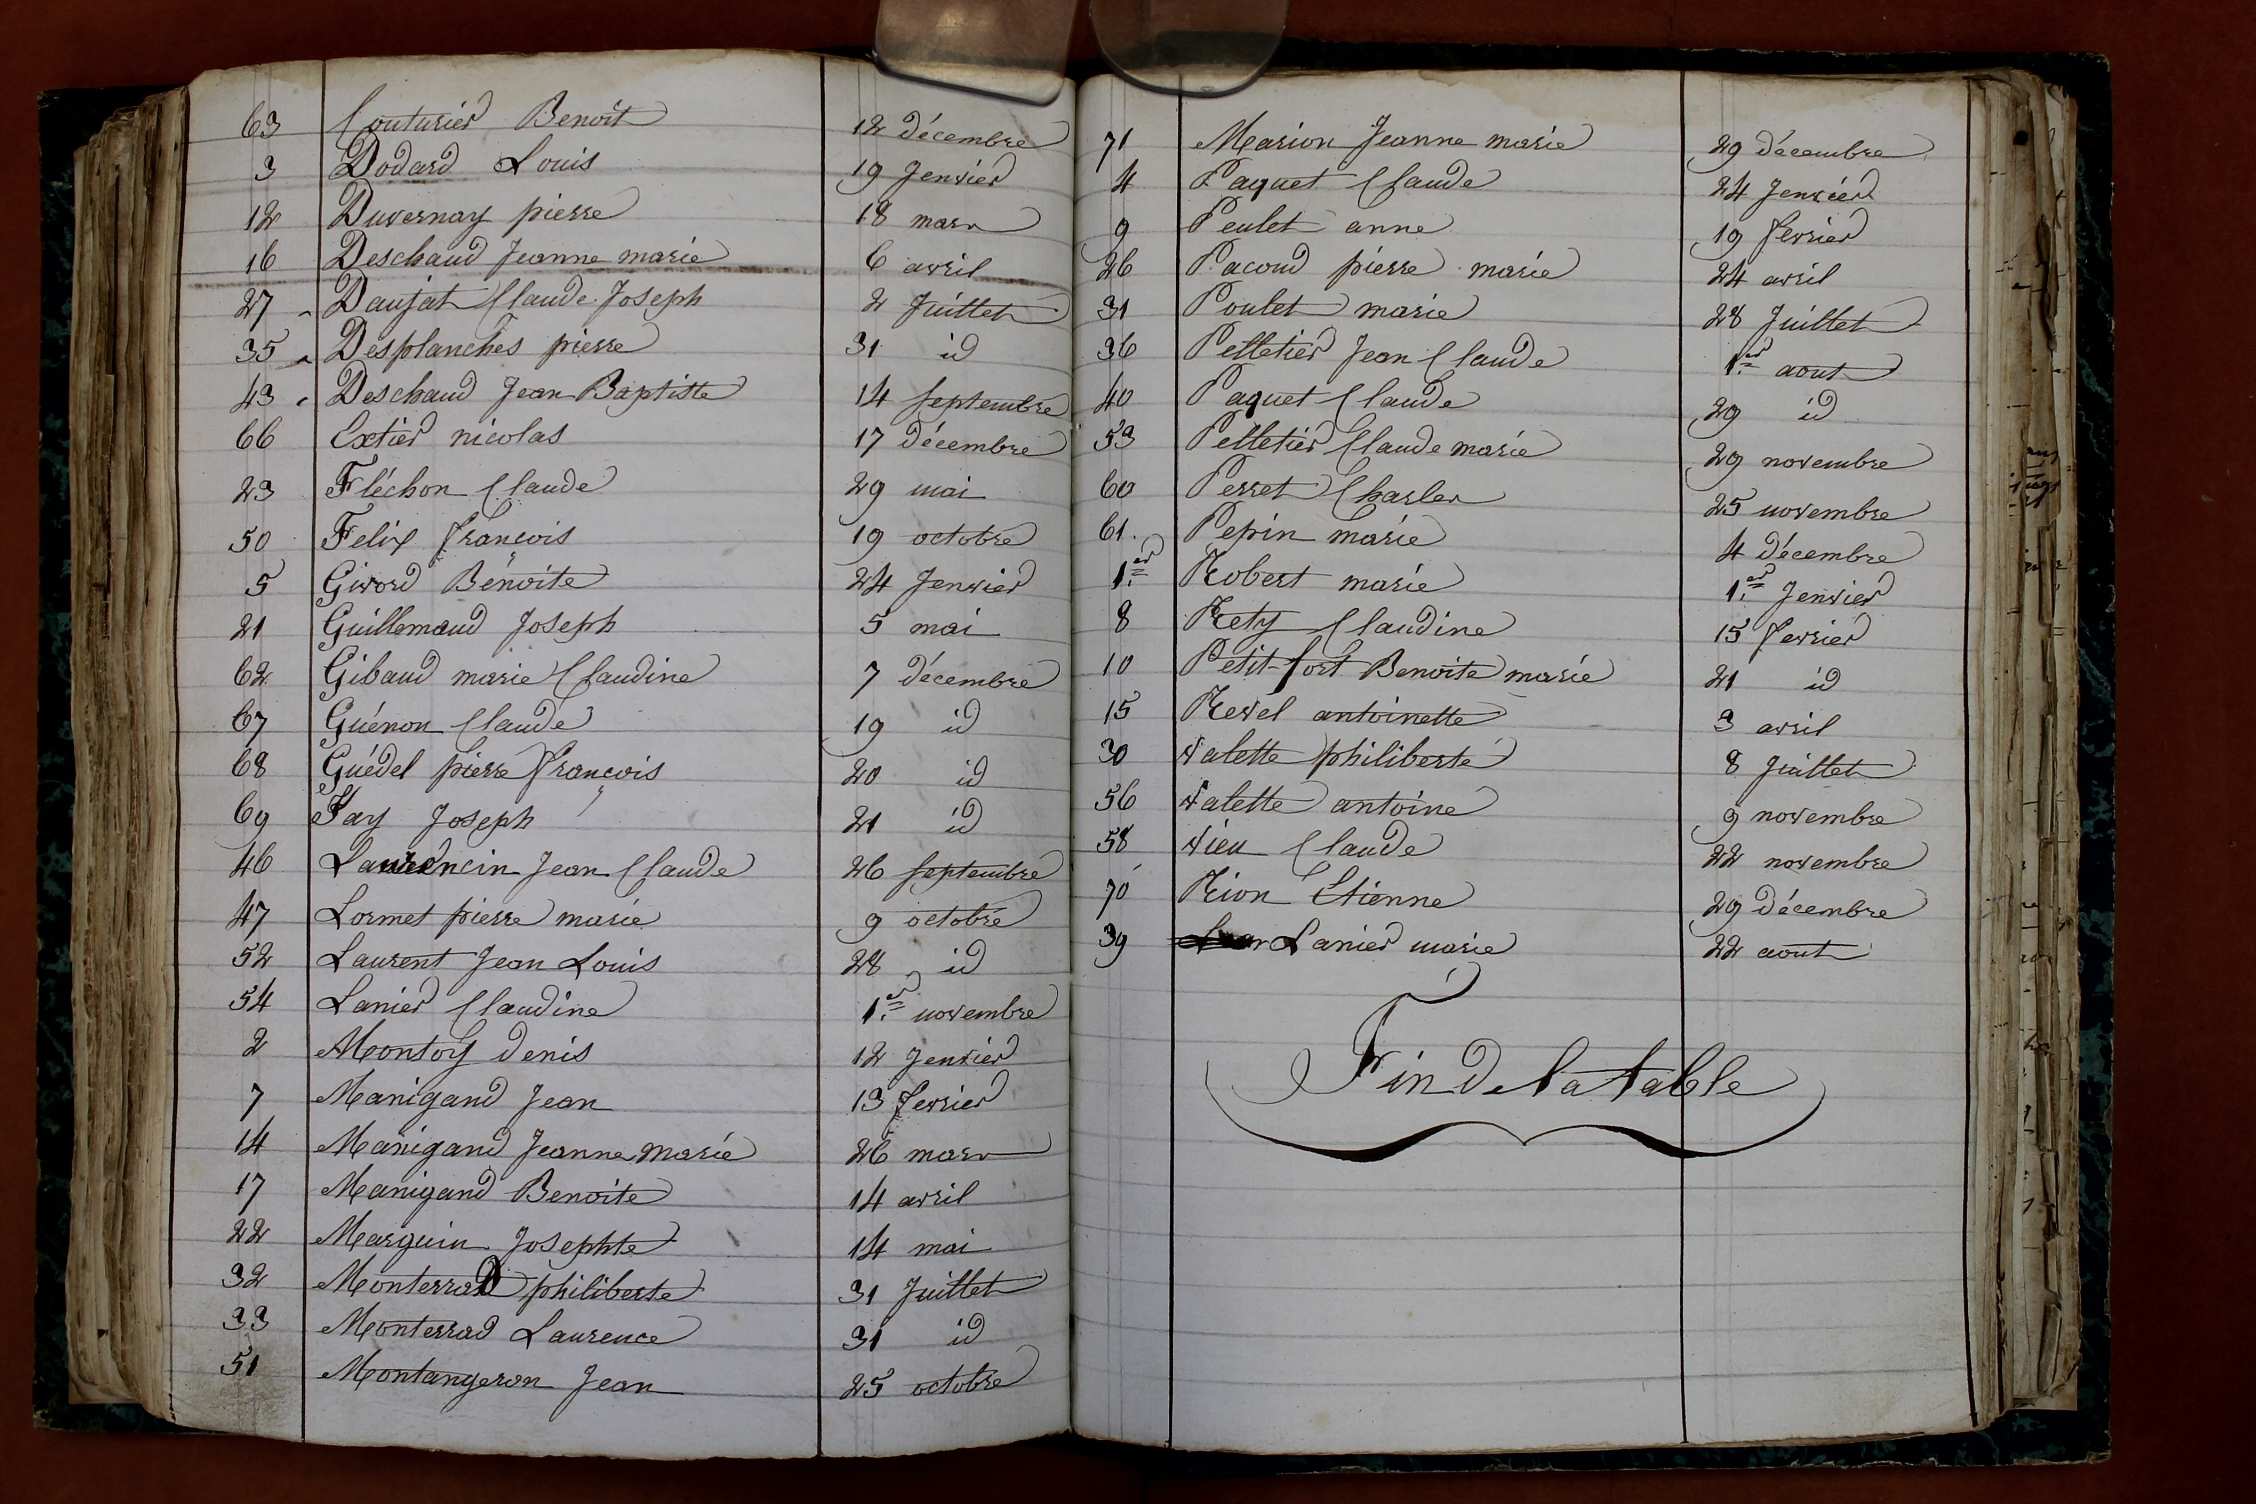 63 Couturier Benoit 12 décembre
3 Dodard Louis 19 Jenvier
12 Duvernay pierre 18 mars
16 Deschaud Jeanne marie 6 avril
27 Daujat Claude Joseph 2 Juillet
35 Desplanches pierre 31 id
43 Deschaud Jean Baptiste 14 septembre
66 Extier nicolas 17 décembre
23 Fléchon Claude 29 mai
50 Felix françois 19 octobre
5 Givord Bénoite 24 Jenvier
21 Guillemaud Joseph 5 mai
62 Gibaud marie Claudine 7 décembre
67 Guénon Claude 19 id
68 Guédel pierre françois 20 id
69 Jay Joseph 21 id
46 Laurencin Jean Claude 26 septembre
47 Lormet pierre marie 9 octobre
52 Laurent Jean Louis 28 id
54 Lanier Claudine 1.er novembre
2 Montoy denis 12 Jenvier
7 Manigand Jean 13 fevrier
14 Manigand Jeanne marie 26 mars
17 Manigand Benoite 14 avril
22 Marguin Josephte 14 mai
32 Monterrad philiberte 31 Juillet
33 Monterrad Laurence 31 id
51 Montangeron Jean 25 octobre
71 Marion Jeanne marie 29 décembre
4 Paquet Claude 24 Jenvier
9 Peulet anne 19 fevrier
26 Pacoud pierre marie 24 avril
31 Poulet marie 28 Juillet
36 Pelletier Jean Claude 1.er aout
40 Paquet Claude 29 id
53 Pelletier Claude marie 29 novembre
60 Perret Charles 25 novembre
61. Pepin marie 4 décembre
1.er Robert marie 1.er Jenvier
8 Rety Claudine 15 fevrier
10 Petit-fort Benoite marie 21 id
15 Revel antoinette 3 avril
30 Valette philiberte 8 Juillet
56 Valette antoine 9 novembre
58 Vieu Claude 22 novembre
70 Rion Etienne 29 décembre
39 Lanier marie 22 aout
Fin de la table